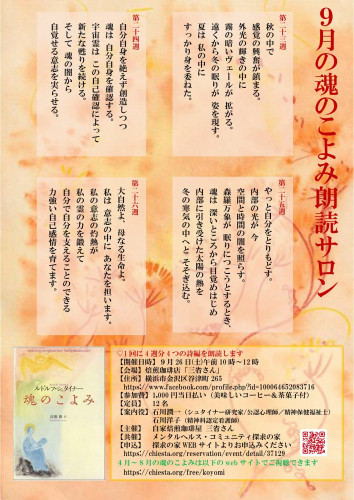 9月の魂のこよみ朗読サロン
第二十三週
秋の中で
感覚の興奮が鎮まる。
外光の輝きの中に
霧の暗いヴェールが 拡がる。
遠くから冬の眠りが 姿を現す。
夏は 私の中に
すっかり身を委ねた。
第二十四週
自分自身を絶えず創造しつつ
魂は 自分自身を確認する。
宇宙霊は この自己確認によって
新たな甦りを続ける。
そして 魂の闇から
自覚せる意志を実らせる。
第二十五週
やっと自分をとりもどす。
内部の光が 今
空間と時間の闇を照らす。
森羅万象が 眠りにつこうとするとき、
魂は 深いところから目覚めはじめ
内部に引き受けた太陽の熱を
冬の寒気の中へとそそぎ込む。
第二十六週
大自然よ、母なる生命よ、
私は 意志の中に あなたを担います。
私の意志の灼熱が
私の霊の力を鍛えて
自分で自分を支えることのできる
力強い自己感情を育てます。
ルドルフ・シュタイナー
魂のこよみ
高橋 巖=訳
♡1回に4週分4つの詩編を朗読します
【開催日時】9月26日(土)午前10時〜12時
【会場】焙煎珈琲店「三省さん」
【住所】横浜市金沢区谷津町265
https://www.facebook.com/profile.php?id=100064652083716
【参加費】1,000円当日払い(美味しいコーヒー&茶菓子付)
【定員】12名
【案内役】石川潤一(シュタイナー研究家/公認心理師/精神保健福祉士)
石川洋子(精神科認定看護師)
【主催】自家焙煎珈琲屋 三省さん
【共催】メンタルヘルス・コミュニティ探求の家
【申込】探求の家WEBサイトよりお申込みください
https://chiesta.org/reservation/event/detail/37129
4月〜8月の魂のこよみは以下のwebサイトでご視聴できます
https://chiesta.org/free/koyomi